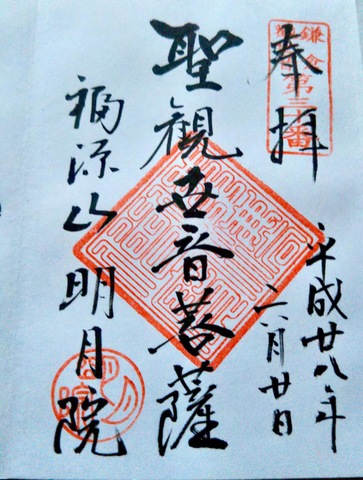 奉拝
鎌倉第三十番
平成廿八年
六月廿日
聖観世音菩薩
福源山明月院